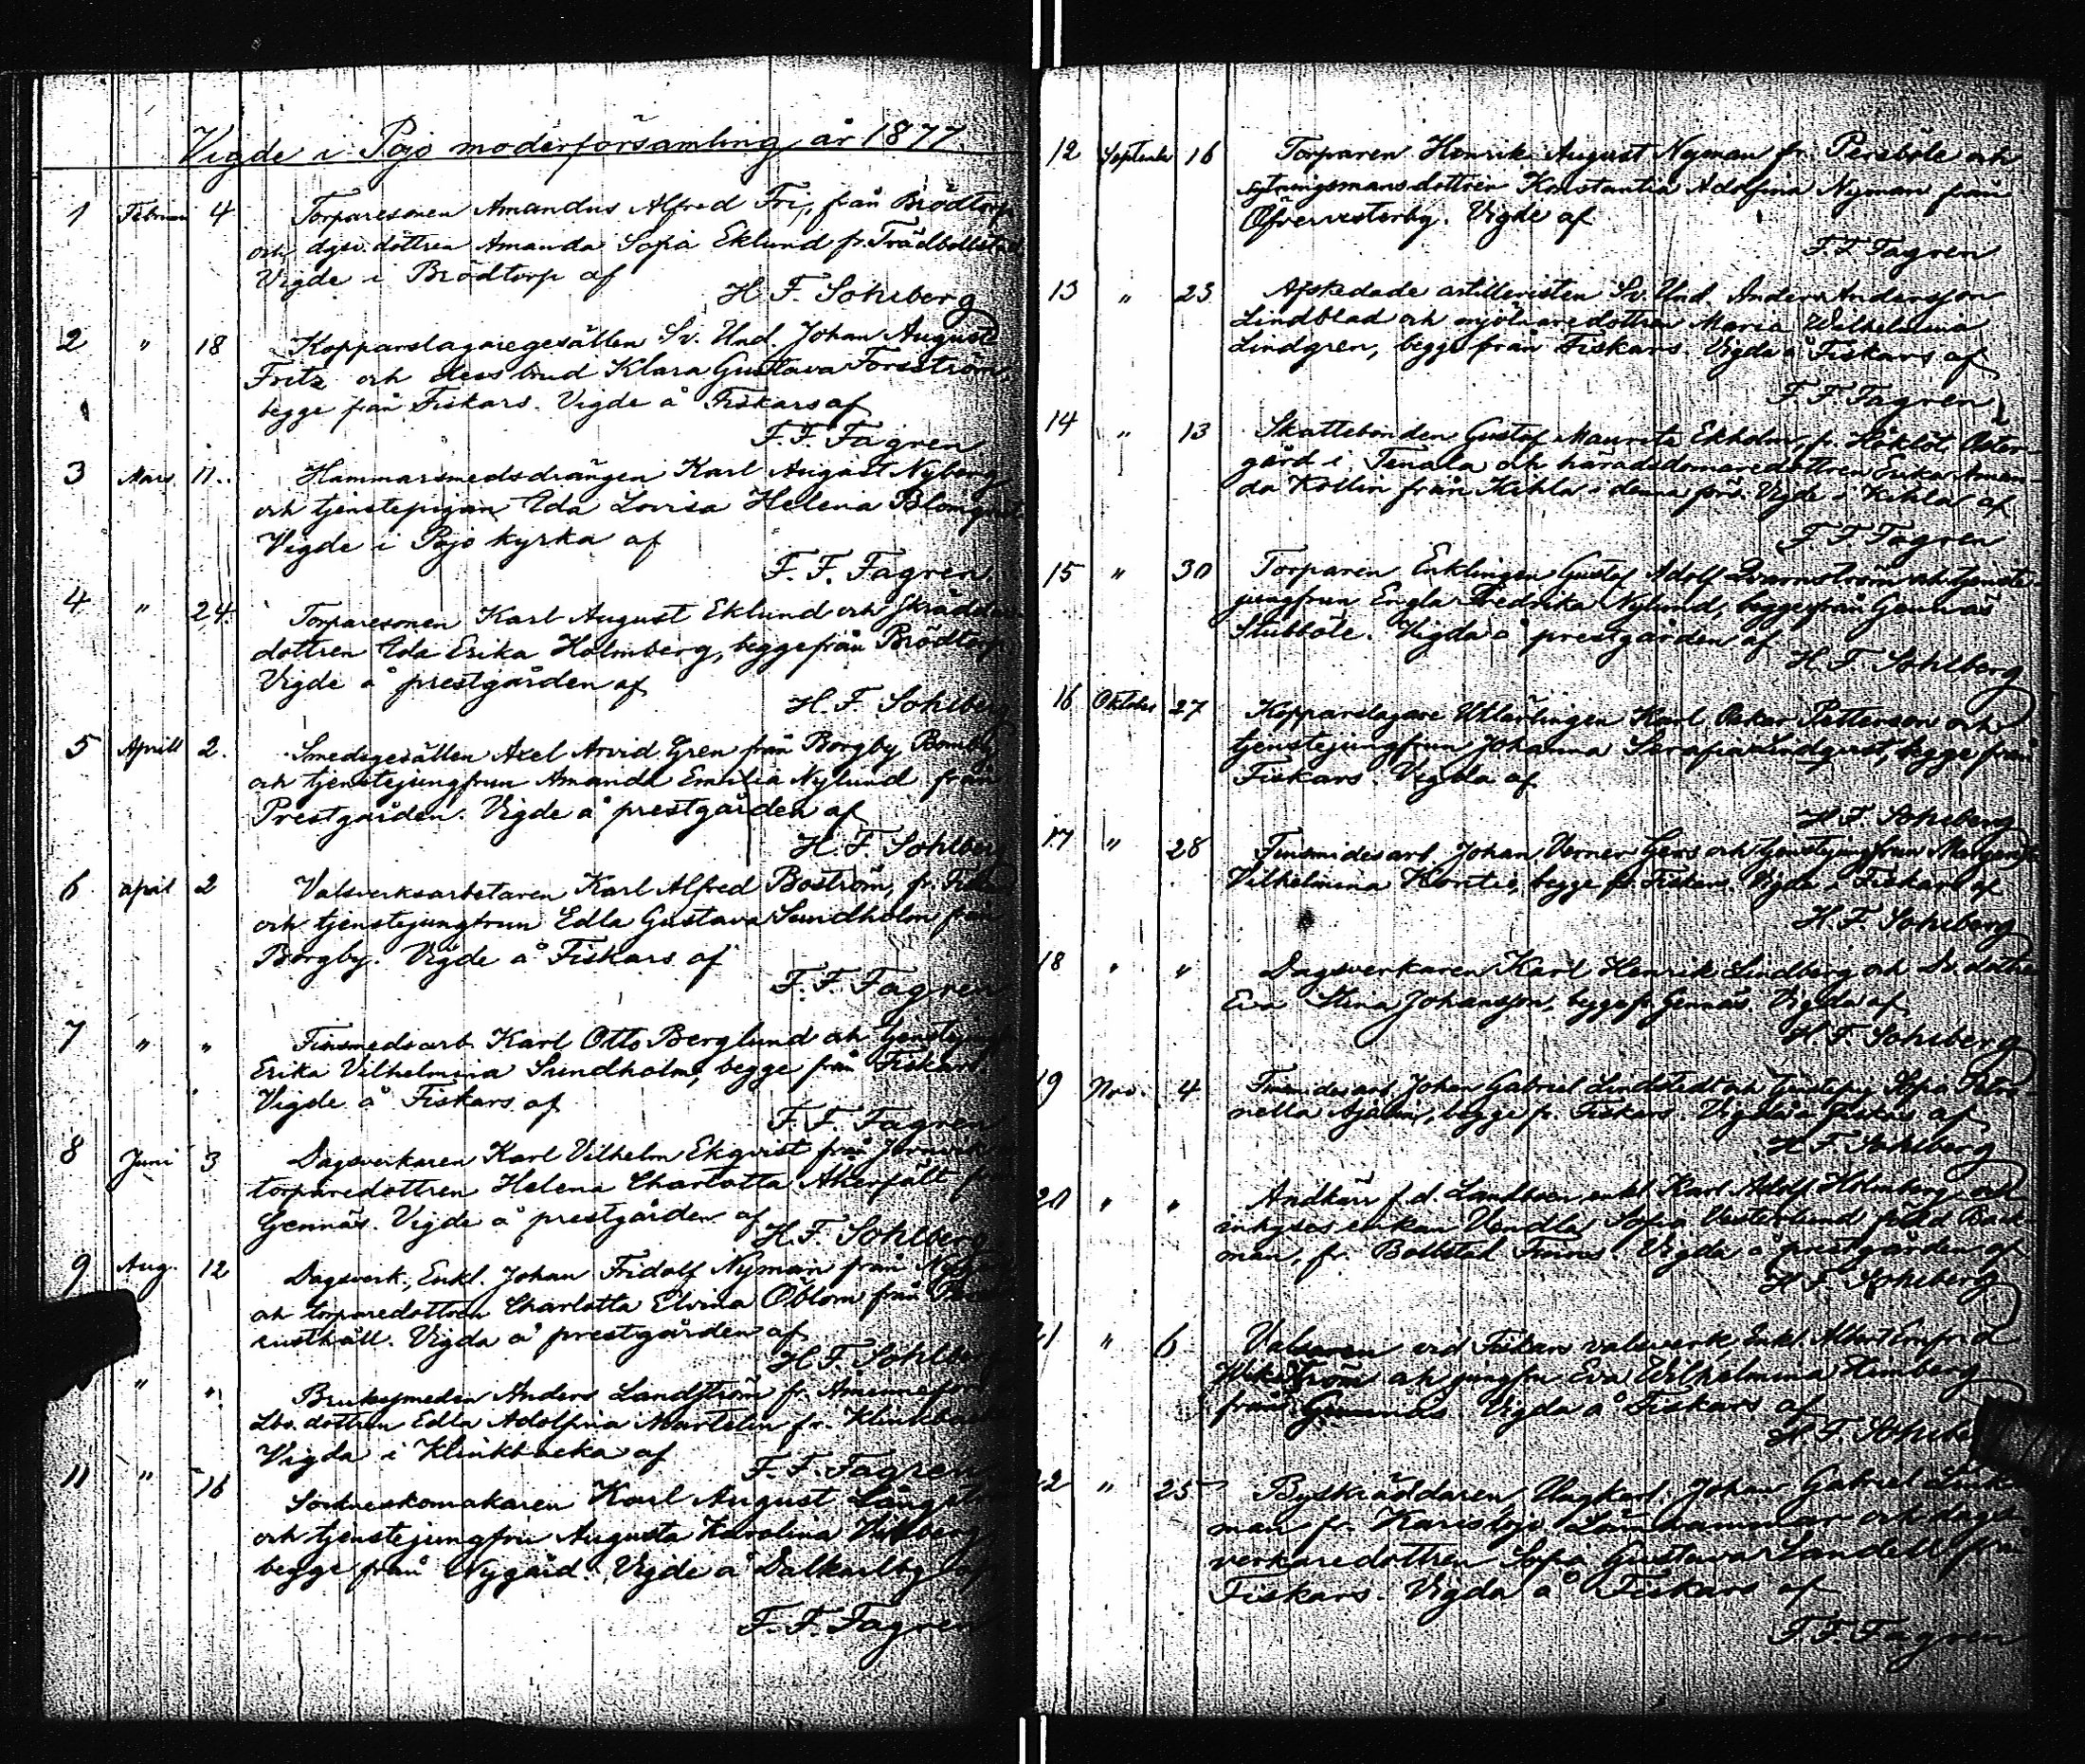 Vigde i Pojo moderförsamling år 1877.
1 Februari 4 Torparesonen Amandus Alfred Fri, från Brödtorp
och dagsv. dottren Amanda Sofia Eklund fr. Trädbollstad
Vigde i Brödtorp af
H. F. Sohlberg
2 " 18 Kopparslagaregesällen Sv. Und. Johan August
Fritz och dess brud Klara Gustava Forsström,
begge från Fiskars. Vigde å Fiskars af
F. F. Fagren
3 Mars 11. Hammarsmedsdrängen Karl August Nyberg
och tjenstepigan Ida Lovisa Helena Blomqvist
Vigde i Pojo kyrka af
F. F. Fagren
4 " 24. Torparesonen Karl August Eklund och Skräddare
dottren Ida Erika Holmberg, begge från Brödtorp
Vigde å prestgården af
H. F. Sohlberg
5 Aprill 2. Smedsgesällen Axel Arvid Gren från Borgby
och tjenstejungfrun Amanda Emilia Nylund från
Prestgården. Vigde å prestgården af
H. F. Sohlberg
6 april 2 Valsverksarbetaren Karl Alfred Boström, fr. Fiskars
och tjenstejungfrun Edla Gustava Sundholm från
Borgby. Vigde å Fiskars af
F. F. Fagren
7 " " Finsmedsarb. Karl Otto Berglund och tjenstejungf
Erika Vilhelmina Sundholm, begge från Fiskars.
Vigde å Fiskars af
F. F. Fagren
8 Juni 3 Dagsverkaren Karl Vilhelm Ekqvist från
torparedottren Helena Charlotta Åkerfält från
Gennäs. Vigde å prestgården af
H. F. Sohlberg
9 Aug. 12 Dagsverk., Enkl. Johan Fridolf Nyman från
och torparedottren Charlotta Elvina Öblom från
rusthåll. Vigda å prestgården af
H. F. Sohlberg
" " Bruksmeden Anders Landström fr. Åminnefors
Lbo. dottren Edla Adolfina Martelin fr. Klinkbacka
Vigda i Klinkbacka af
F. F. Fagren
11 " 16 Sockneskomakaren Karl August
och tjenstejungfru Augusta Karolina
begge från Nygård. Vigde å Dalkarlby af
F. F. Fagren
12 Septemb 16 Torparen Henrik August Nyman fr. Persböle och
sytningsmansdottren Konstantia Adolfina Nyman från
Öfvervesterby. Vigde af
F. F. Fagren
13 " 23 Afskedade artilleristen Sv. Und. Anders Andersson
Lindblad och mjölnaredottren Maria Wilhelmina
Lindgren, begge från Fiskars. Vigda å Fiskars af
F. F. Fagren
14 " 13 Skattebonden Gustaf Mauritz Ekholm, fr. Öster-
gård i Tenala och häradsdomaredottren Erika Aman-
da Kollin från Kihla i denna förs. Vigde i Kihla af
F. F. Fagren
15 " 30 Torparen Enklingen Gustaf Adolf Qvarnström och tjenste-
jungfrun Engla Fredrika Nylund, begge från Gennäs
Stubböle. Vigda å prestgården af
H. F. Sohlberg
16 Oktober 27 Kopparslagare Utlärlingen Karl Oskar Petterson och
tjenstejungfrun Johanna Serafia Lindqvist, begge från
Fiskars. Vigda af
H. F. Sohlberg
17 " 28 Finsmidesarb. Johan Verner Gers och tjenstejungfrun Margareta
Vilhelmina begge fr. Fiskars. Vigda i Fiskars af
H. F. Sohlberg
18 " " Dagsverkaren Karl Henrik Lindberg och D. dottren
Eva Stina Johansson, begge fr. Gennäs. Vigda af
H. F. Sohlberg
19 Nov. 4 Finsmidesarb. Johan Gabriel Lindstedt och tjenstepig. Sofia Petro-
nella begge fr. Fiskars. Vigda å Fiskars af
H. F. Sohlberg
20 " " f. d. Landboen, enkl. Karl Adolf Holmberg och
inhyses enkan Vendla Sofia Vesterlund född Back-
man, fr. Bollstad Finnas. Vigda å prestgården af
H. F. Sohlberg
21 " 6 Valsaren vid Fiskars valsverk, Enkl. Albert Ernfrid
Wikström och jungfru Eva Wilhelmina
från Gennäs. Vigda å Fiskars af
H. F. Sohlberg
22 " 25 Byskräddaren, Ungkarl, Johan Gabriel
man fr. Karislojo och dags-
verkaredottren Sofia Gustava Sandell från
Fiskars. Vigda å Fiskars af
F. F. Fagren